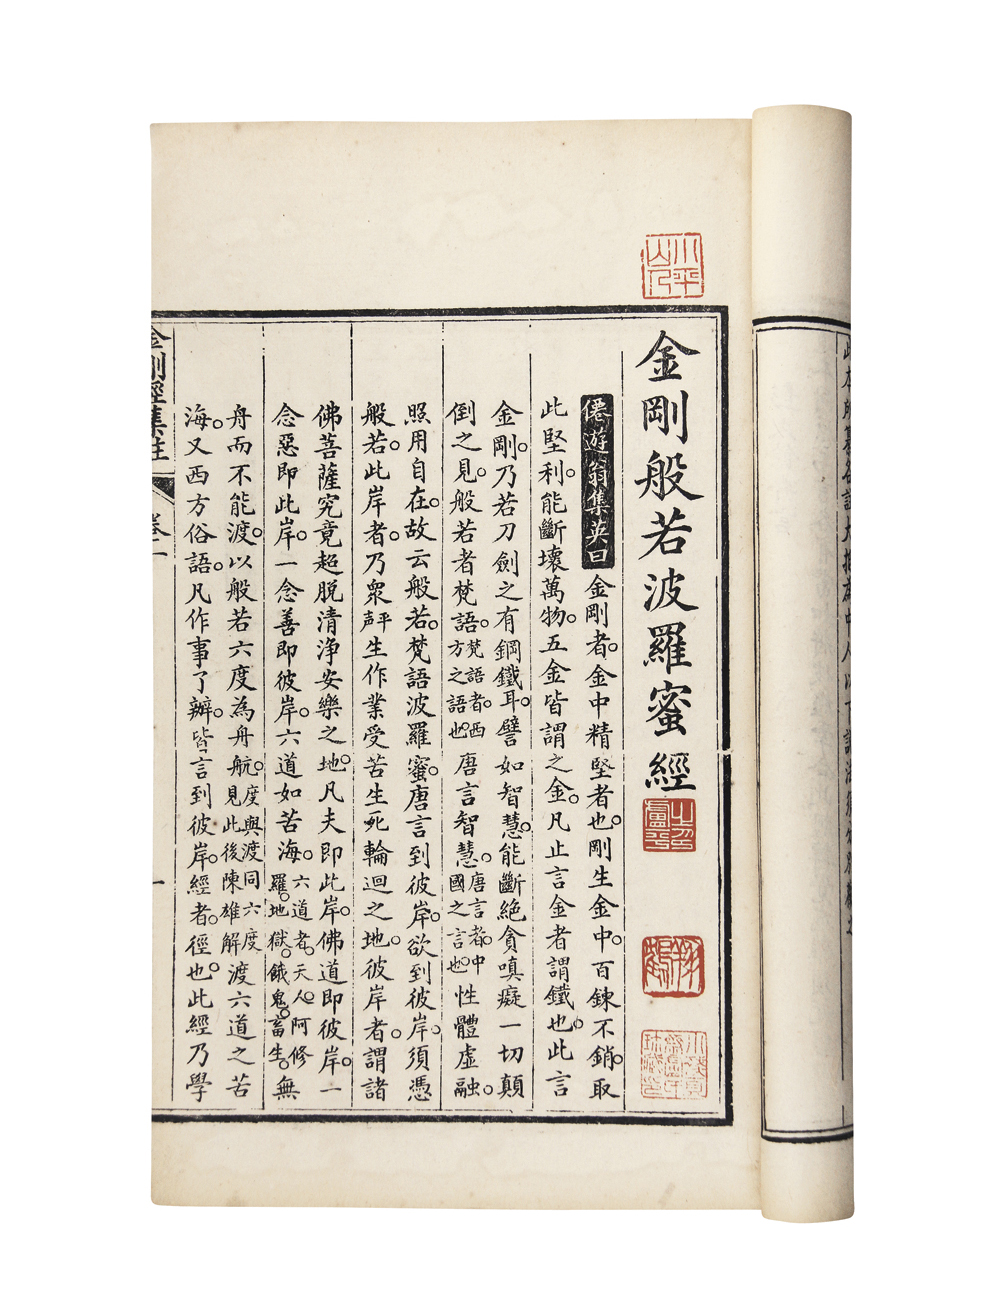 金剛般若波羅蜜經
僊遊翁集英曰金剛者。金中精堅者也。剛生金中。百鍊不銷。取
此堅利。能斷壞萬物。五金皆謂之金。凡止言金者謂鐵也。此言
金剛。乃若刀劍之有鋼鐵耳。譬如智慧。能斷絶貪嗔癡一切顛
倒之見。般若者梵語。梵語者。西方之語也。唐言智慧。唐言者。中國之言也。性體虛融。
照用自在。故云般若。梵語波羅蜜。唐言到彼岸。欲到彼岸。須憑
般若。此岸者。乃衆平声生作業受苦生死輪迴之地。彼岸者。謂諸
佛菩薩究竟超脫清淨安樂之地。凡夫即此岸。佛道即彼岸。一
念惡即此岸。一念善即彼岸。六道如苦海。六道者。天。人。阿修羅。地獄。餓鬼。畜生。無
舟而不能渡。以般若六度為舟航。度與渡同六度見此後陳雄解渡六道之苦
海。又西方俗語。凡作事了辦。皆言到彼岸。經者。徑也。此經乃學
金剛經集註
卷一
一